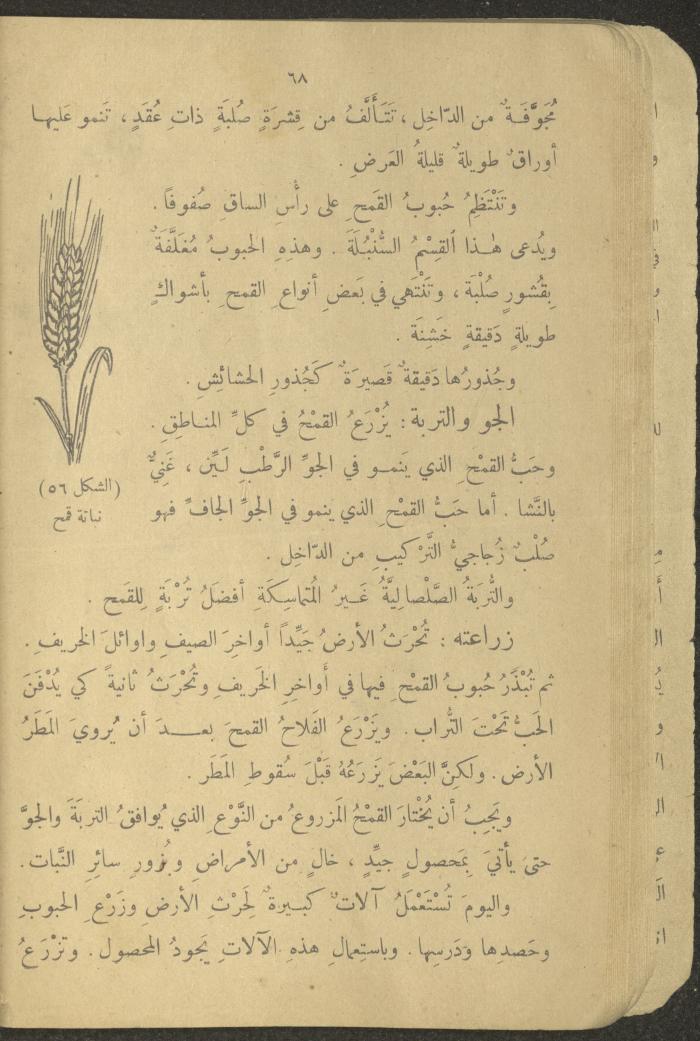 ٦٨
مُجَوَّفَةٌ من الدّاخِل ، تَتَأَلَّفُ من قِشرَةٍ صُلبَةٍ ذاتِ عُقَدٍ ، تَنمو عَليها
أوراقٌ طويلةٌ قليلةُ العَرضِ .
وتَنْتَظِمُ حُبوبُ القَمحِ على رأْسِ الساقِ صُفوفاً .
ويُدعى هٰذا القِسْمُ السُّنْبُلَةَ . وهذِهِ الحبوبُ مُغَلَّفَةٌ
بِقُشورٍ صُلْبَة ، وتَنْتَهي في بَعضِ أنواعِ القمحِ بأشواكٍ
طويلةٍ دَقيقةٍ خَشِنَة .
وجُذورُها دَقيقةٌ قَصيرَةٌ كَجُذورِ الحشائِشِ .
الجو والتربة : يُزْرَعُ القمْحُ في كلِّ المناطِقِ .
وحَبُّ القمْحِ الذي يَنمو في الجوِّ الرَّطْبِ لَيِّن ، غَنِيٌّ
بالنَّشا . أما حَبُّ القمْحِ الذي ينمو في الجوِّ الجافِّ فهو
صُلْبٌ زُجاجيُّ التَّرْكيبِ من الدّاخِل .
والتُّربَةُ الصَّلْصالِيَّةُ غَيرُ المُتماسِكَةِ أفضَلُ تُرْبَةٍ لِلقَمح .
زراعته : تُحْرَثُ الأرضُ جَيِّداً أواخِرَ الصيفِ واوائلَ الخريفِ .
ثم تُبْذَرُ حُبوبُ القمْحِ فيها في أَواخِرِ الخَريفِ وتُحْرَثُ ثانيةً كي يُدْفَنَ
الحَبُّ تَحْتَ التُّراب . ويَزْرَعُ الفَلاحُ القمحَ بعدَ أن يُرويَ المَطَرُ
الأرض . ولكِنَّ البَعْضَ يَزرَعُهُ قَبْلَ سُقوطِ المَطَر .
ويَجِبُ أن يُخْتارَ القمْحُ المَزروعُ من النَّوْعِ الذي يُوافقُ التربَةَ والجوَّ
حتى يأتيَ بِمَحصولٍ جيِّدٍ ، خالٍ من الأمراضِ وبُزورِ سائِرِ النَّبات .
واليومَ تُسْتَعْمَلُ آلاتٌ كبيرةٌ لِحَرْثِ الأرضِ وزَرْعِ الحبوبِ
وحَصدِها ودَرسِها . وباستِعمالِ هذه الآلاتِ يَجودُ المحصول . وتزْرَعُ
(الشكل ٥٦)
نباتة قمح